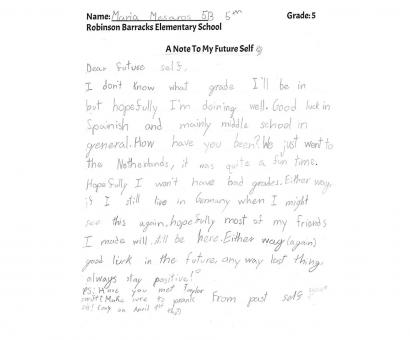 Name: Maria Mesaros 5B 5th Grade: 5
Robinson Barracks Elementary School
A Note To My Future Self
Dear future self,
I don't know what grade I'll be in
but hopefully I'm doining well. Good luck in
Spainish and mainly middle school in
general. How have you been? We just went to
the Netherlands, it was quite a fun time.
Hopefully I won't have bad grades. Either way,
if I still live in Germany when I might
see this again, hopefully most of my friends
I made will still be here. Either way (again)
good luck in the future, any way last thing,
always stay positive!
PS: Have you met Taylor
swift? Make sure to prank
on April 1st
From past self